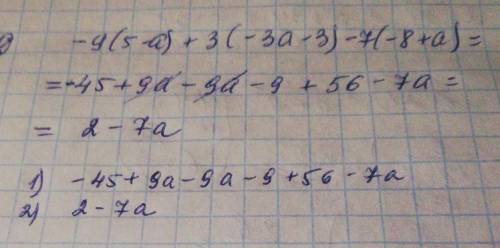 -9(5-a)+3(-3a-3)-7(-8+a)=
=-45+9a-9a-9+56-7a=
=2-7a
1) -45+9a-9a-9+56-7a
2) 2-7a